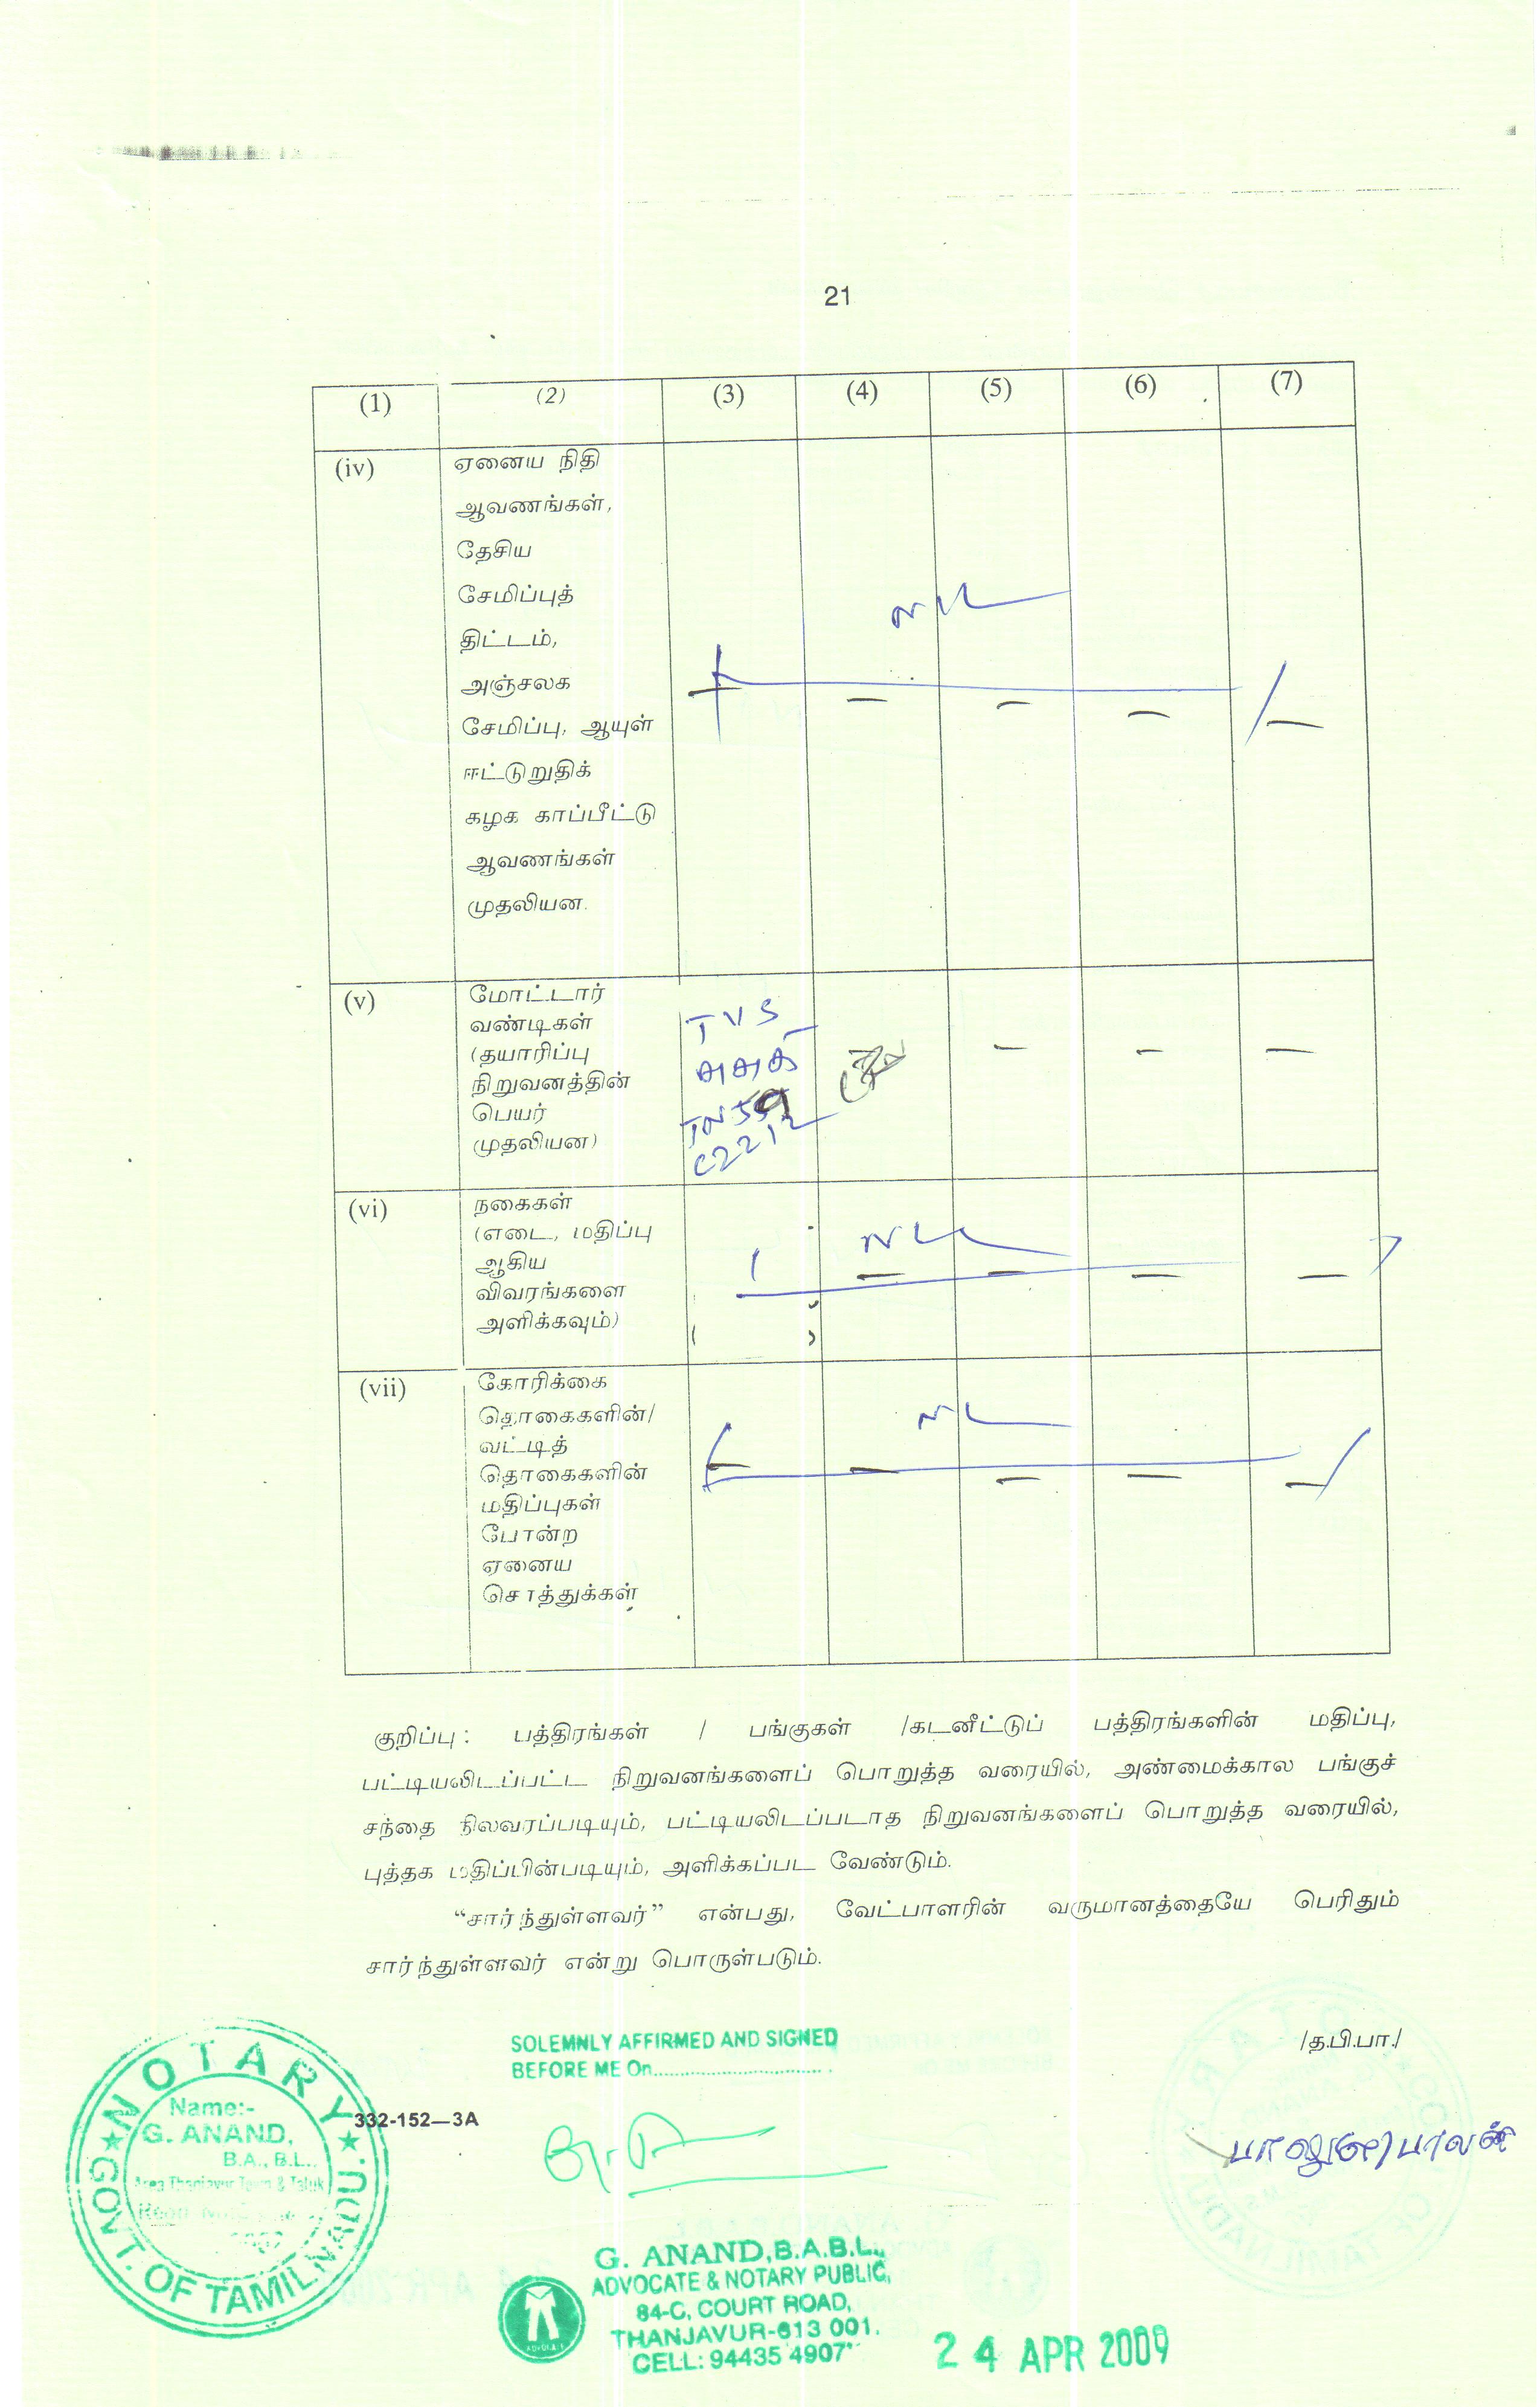 21
(1) (2) (3) (4) (5) (6) (7)
(iv) ஏனைய நிதி
ஆவணங்கள்,
தேசிய
சேமிப்புத்
திட்டம்,
அஞ்சலக
சேமிப்பு, ஆயுள்
ஈட்டுறுதிக்
கழக காப்பீட்டு
ஆவணங்கள்
முதலியன.
NIL
— — — — —
(v) மோட்டார்
வண்டிகள்
(தயாரிப்பு
நிறுவனத்தின்
பெயர்
முதலியன)
TVS
TN 59
C2212
— — —
(vi) நகைகள்
(எடை, மதிப்பு
ஆகிய
விவரங்களை
அளிக்கவும்)
NIL
— — — —
(vii) கோரிக்கை
தொகைகளின்/
வட்டித்
தொகைகளின்
மதிப்புகள்
போன்ற
ஏனைய
சொத்துக்கள்
NIL
— — — — —
குறிப்பு : பத்திரங்கள் / பங்குகள் /கடனீட்டுப் பத்திரங்களின் மதிப்பு,
பட்டியலிடப்பட்ட நிறுவனங்களைப் பொறுத்த வரையில், அண்மைக்கால பங்குச்
சந்தை நிலவரப்படியும், பட்டியலிடப்படாத நிறுவனங்களைப் பொறுத்த வரையில்,
புத்தக மதிப்பின்படியும், அளிக்கப்பட வேண்டும்.
“சார்ந்துள்ளவர்” என்பது, வேட்பாளரின் வருமானத்தையே பெரிதும்
சார்ந்துள்ளவர் என்று பொருள்படும்.
/த.பி.பா./
SOLEMNLY AFFIRMED AND SIGNED
BEFORE ME On..............................
332-152—3A
NOTARY
GOVT. OF TAMILNADU
Name:-
G. ANAND,
B.A., B.L.,
Area Thanjavur Town & Taluk
G. ANAND, B.A.B.L.,
ADVOCATE & NOTARY PUBLIC,
84-C, COURT ROAD,
THANJAVUR-613 001.
CELL: 94435 4907
ADVOCATE
24 APR 2009